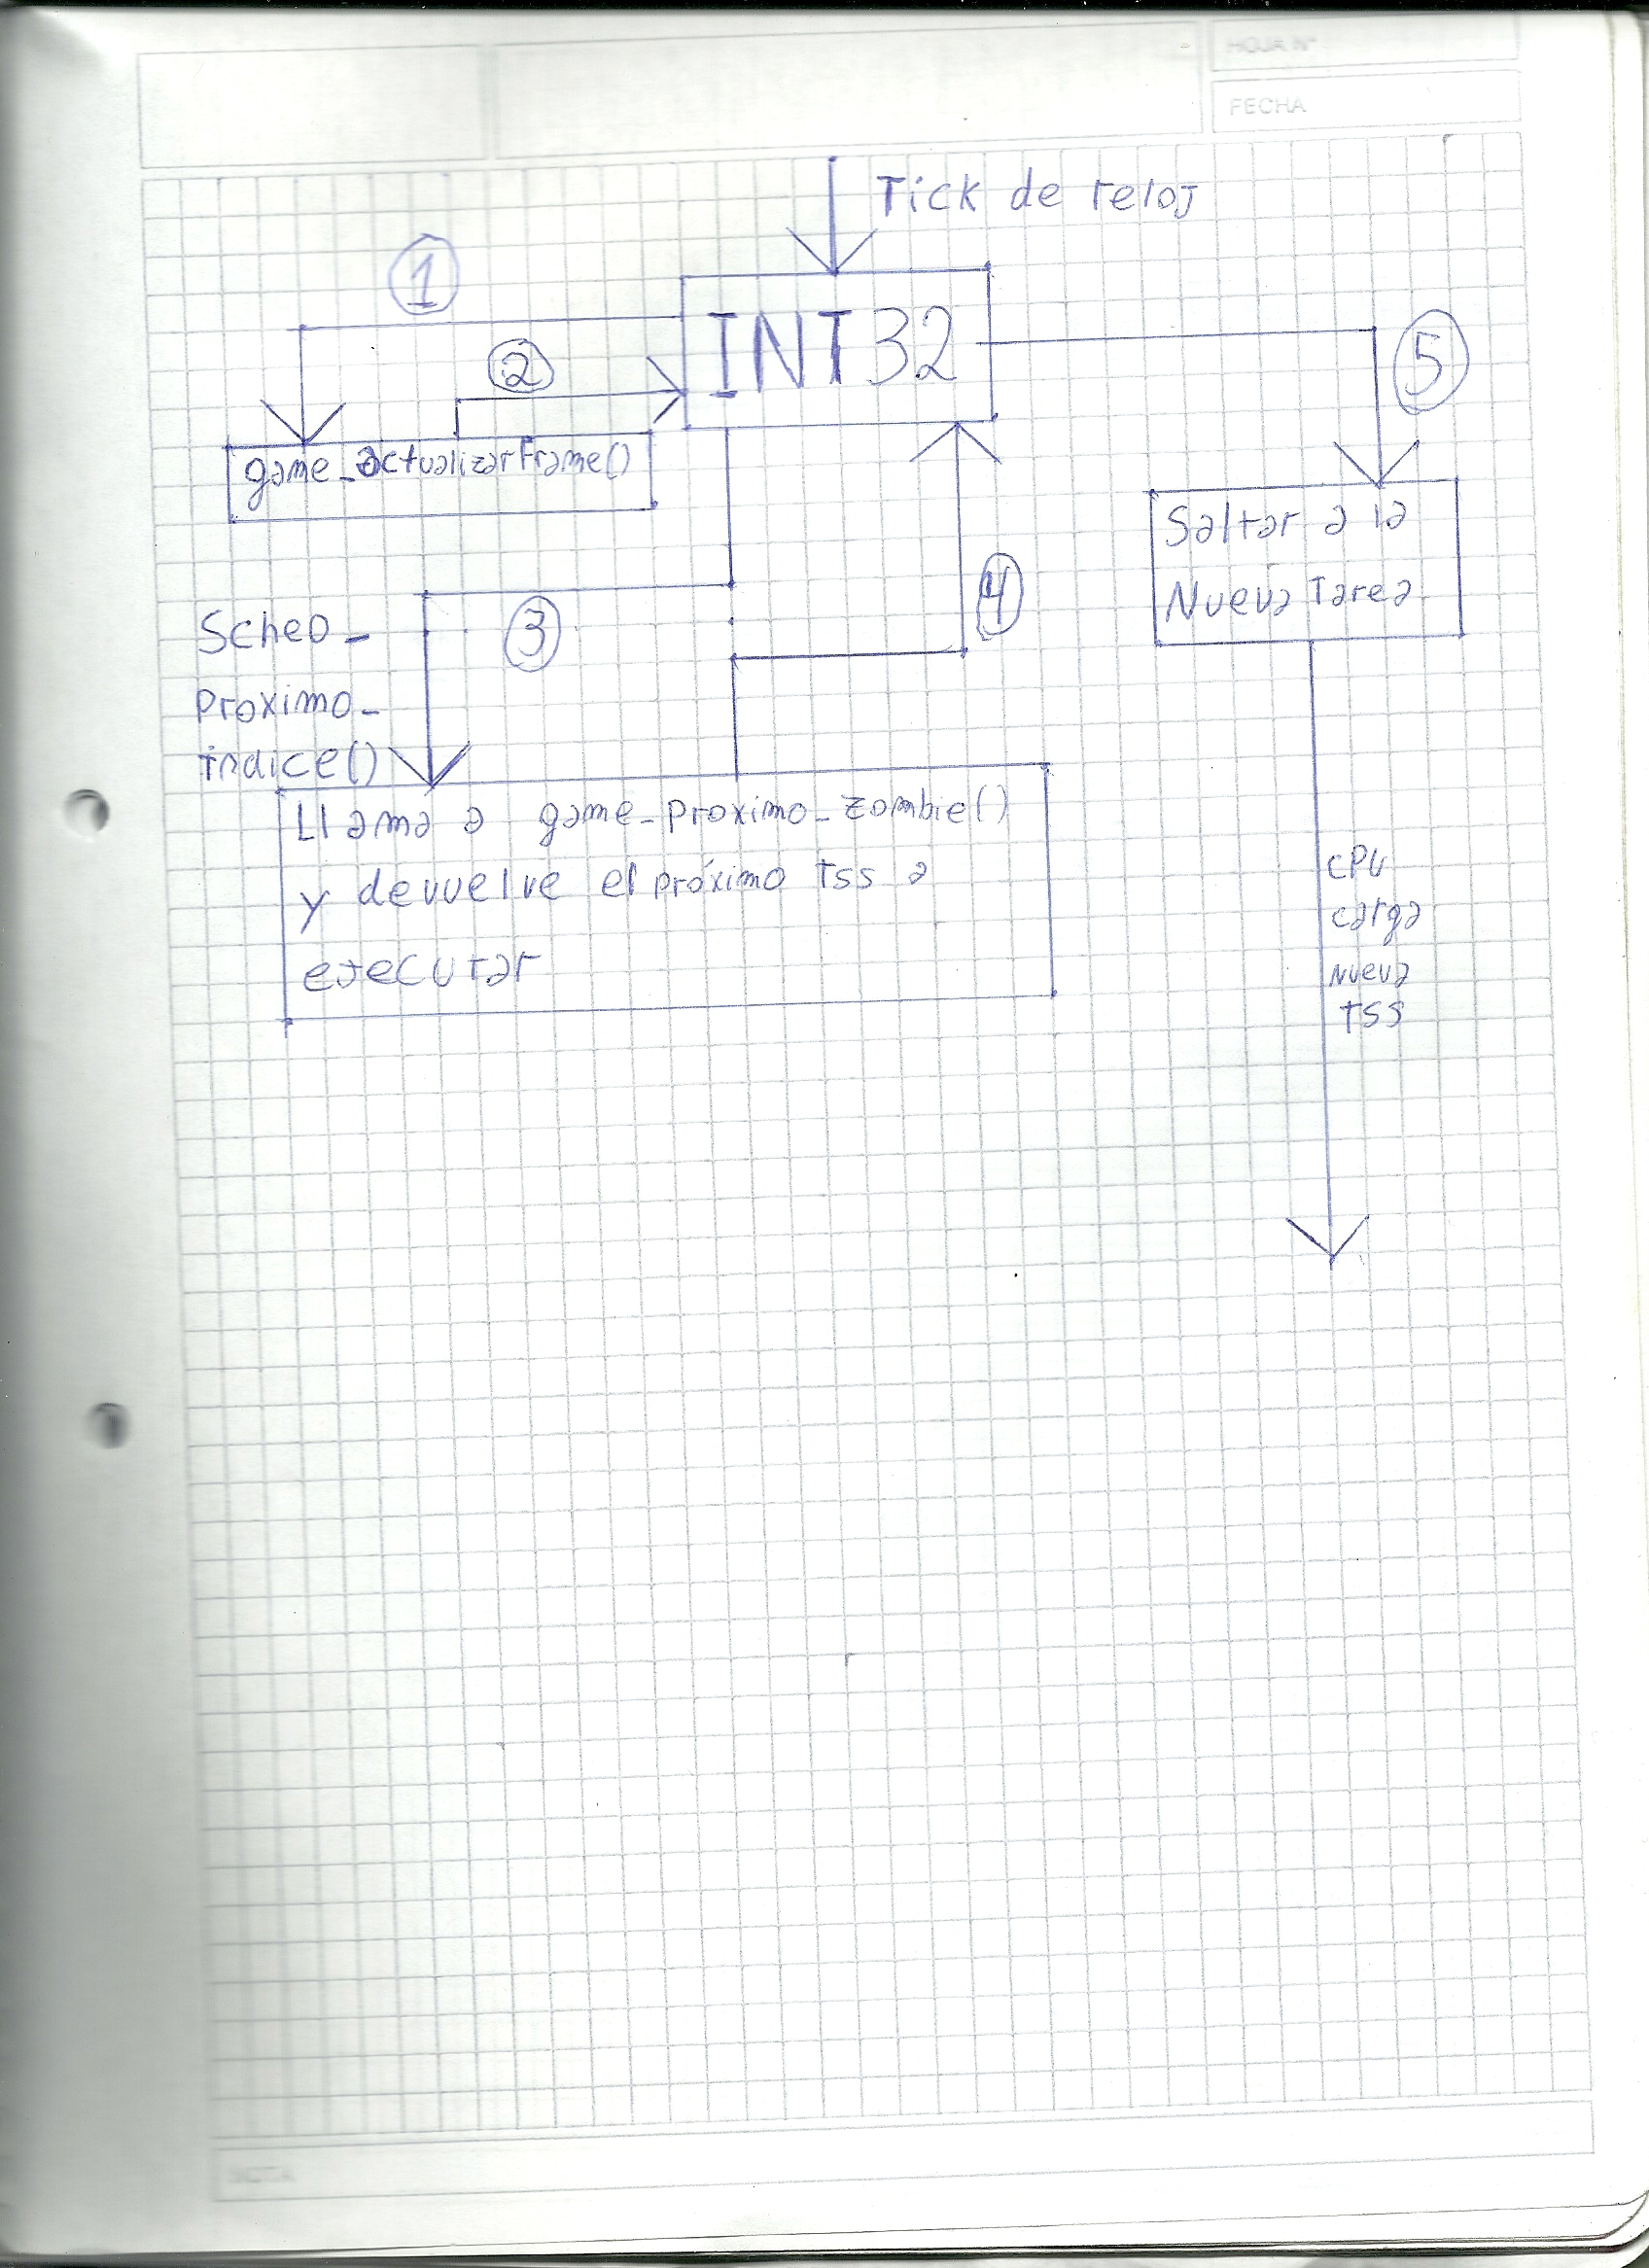 HOJA Nº
FECHA
Tick de reloj
1
INT 32
2
5
game_actualizarFrame()
Saltar a la
Nueva Tarea
4
3
Sched_
proximo_
indice()
Llama a game_proximo_zombie()
y devuelve el próximo tss a
ejecutar
CPU
carga
nueva
tss
NOTA